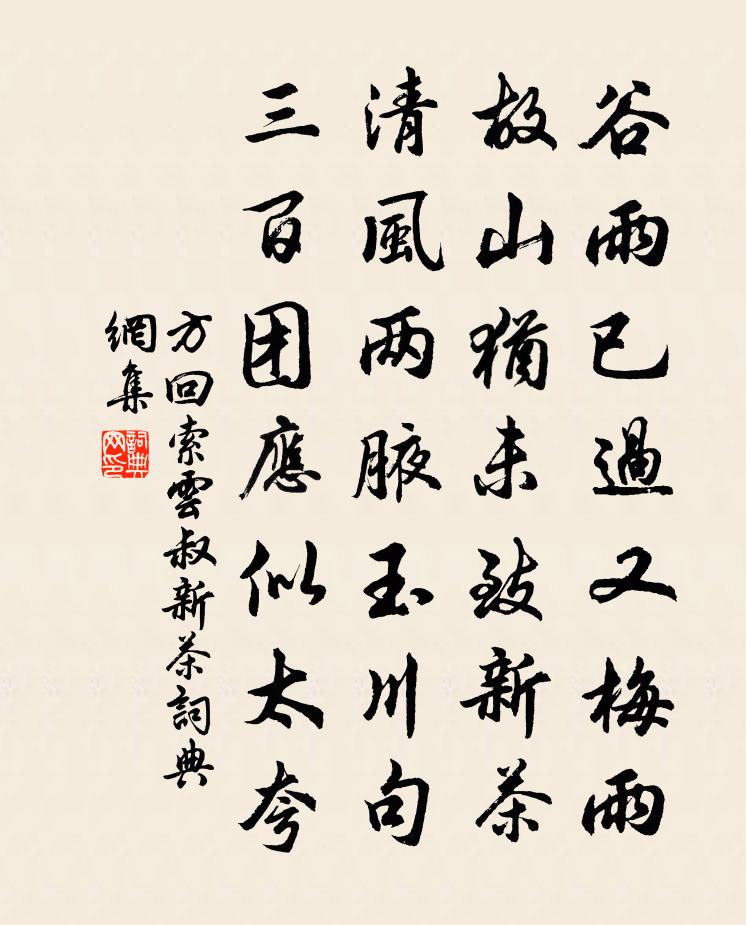 谷雨已過又梅雨
故山猶未致新茶
清風两腋玉川句
三百团應似太夸
方回索雲叔新茶詞典
網集
詞典网印